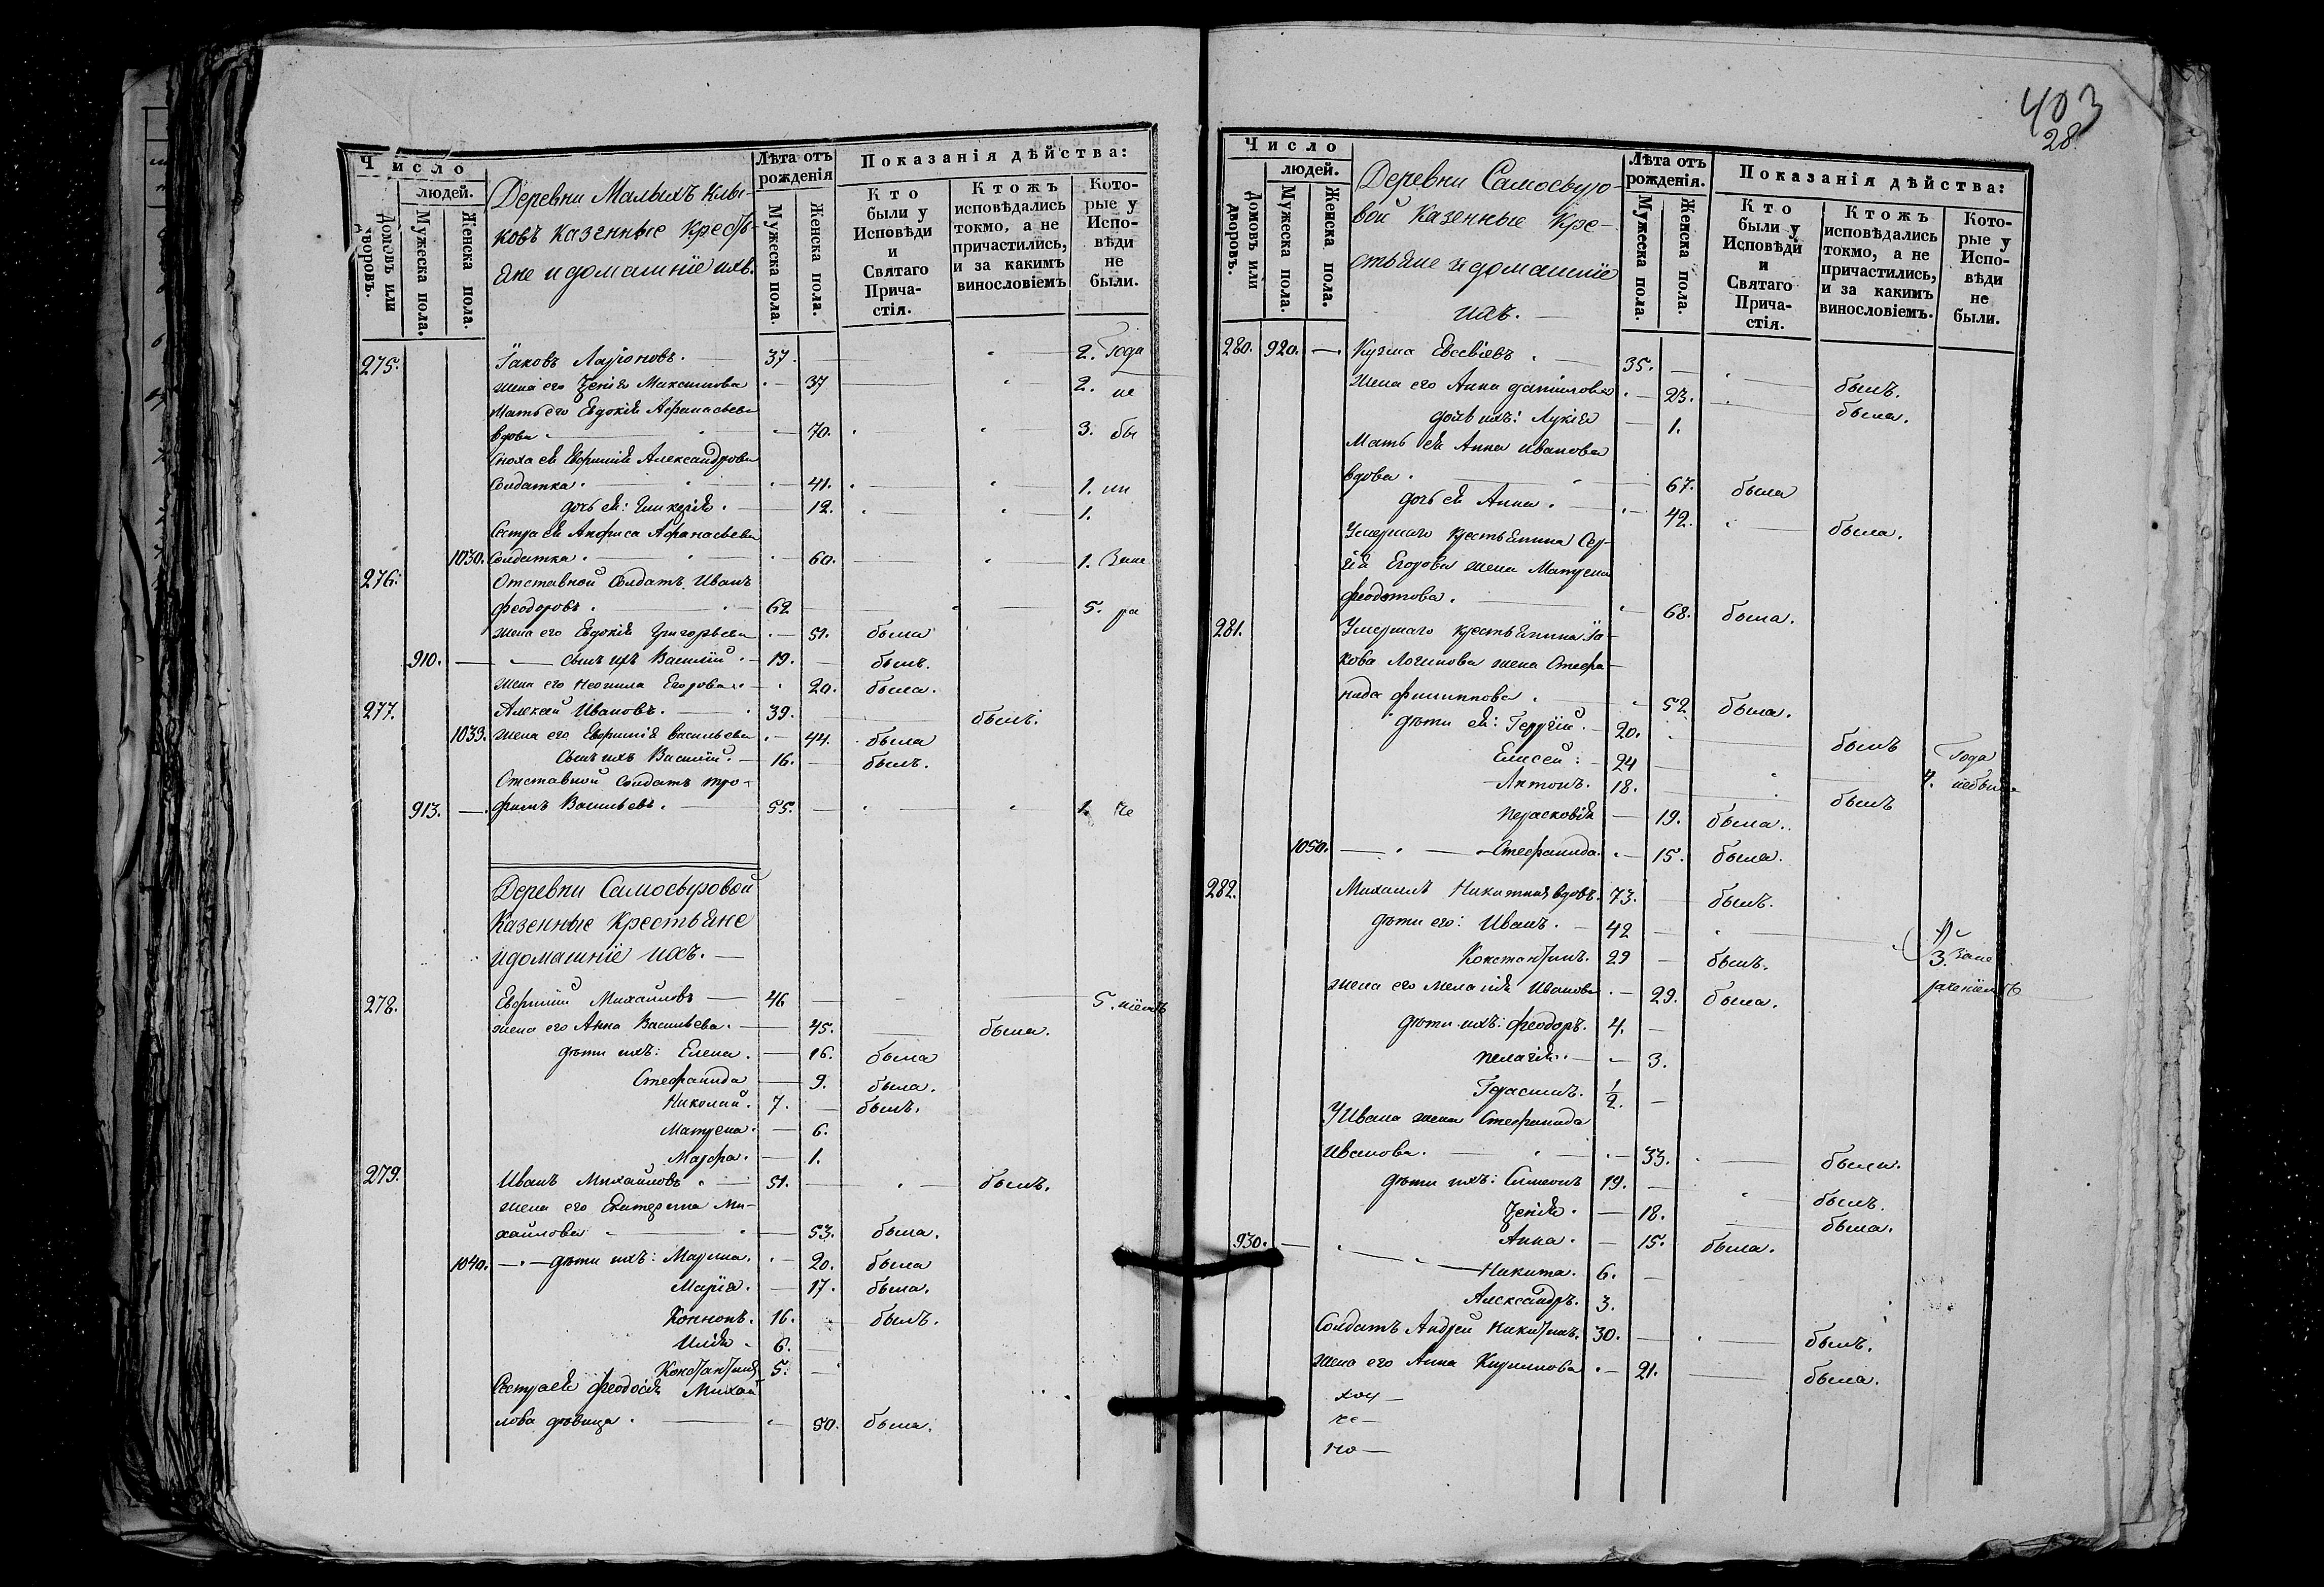 Число
людей.
Домовъ или дворовъ.
Мужеска пола.
Женска пола.
Деревни Малыхъ Клы-
ковъ казенные Кресть-
яне и домашніе ихъ.
Лѣта отъ рожденія
Мужеска пола.
Женска пола.
Показанія дѣйства:
Кто были у Исповѣди и Святаго Прича-стія.
Ктожъ исповѣдались токмо, а не причастились, и за какимъ винословіемъ
Кото-рые у Испо-вѣди не были.
275. Іаковъ Ларіоновъ. 37. 2. Года
жена его Ѯенія Максимова 37 2. не
Мать его Евдокія Афанасьева
вдова 70. 3. бы
Сноха ея Евфимія Александрова
Солдатка. 41. 1.
дочь ея: Гликерія. 12. 1.
Сестра ея Анфиса Афанасьева
1030. Солдатка. 60. 1. Зане
276. Отставной Солдатъ Иванъ
Феодоровъ. 62 5. ра
жена его Евдокія Григорьева 51. была
910. сынъ ихъ Василій 19. былъ.
жена его Неонила Егорова 20. была.
277. Алексій Ивановъ. 39. былъ.
1033. жена его Евфимія Васильева 44. была
Сынъ ихъ Василій. 16. былъ.
Отставной Солдатъ Тро-
913. фимъ Васильевъ. 55. 1. че
Деревни Самосыровой
Казенные Крестьяне
и домашніе ихъ.
278. Евфимій Михайловъ 46 5. ніемъ
жена его Анна Васильева. 45. была.
дѣти ихъ: Елена. 16. была
Стефанида 9. была.
Николай. 7. былъ.
Матрена. 6.
Марфа. 1.
279. Иванъ Михайловъ 51. былъ.
жена его Екатерина Ми-
хайлова 53. была.
1040. дѣти ихъ: Марина. 20. была
Марія. 17. была.
Кононъ. 16. былъ.
Илія 6.
Константинъ 5.
Сестра ея Феодосія Михай-
лова дѣвица. 50. была.
403
28.
Число
людей.
Домовъ или дворовъ.
Мужеска пола.
Женска пола.
Деревни Самосыро-
вой Казенные Кре-
стьяне и домашніе
ихъ.
Лѣта отъ рожденія.
Мужеска пола.
Женска пола.
Показанія дѣйства:
Кто были у Исповѣди и Святаго Прича-стія.
Ктожъ исповѣдались токмо, а не причастились, и за какимъ винословіемъ.
Кото-рые у Испо-вѣди не были.
280. 920. Кузма Евсевіевъ. 35. былъ.
жена его Анна Даніилова 23. была.
дочь ихъ: Лукія 1.
Мать ея Анна Иванова
вдова 67. была
дочь ея Анна. 42. была.
Умершаго крестьянина Сер-
гія Егорова жена Матрена
Феодотова. 68. была.
281. Умершаго крестьянина Іа-
кова Логинова жена Стефа-
нида Филиппова. 52 была.
дѣти ея: Георгій. 20. былъ
Елисей: 24 4. Года небылъ.
Антонъ. 18. былъ
Парасковія 19. была.
1050. Стефанида. 15. была.
282. Михаилъ Никитинъ вдовъ. 73. былъ.
дѣти его: Иванъ. 42 3. Зане
Константинъ. 29 былъ.
жена его Меланія Иванова 29. была. раченіемъ
дѣти ихъ: Феодоръ. 4.
Пелагія. 3.
Герасимъ. 1/2.
У Ивана жена Стефанида
Иванова. 33. была.
дѣти ихъ: Симеонъ 19. былъ.
Ѯенія. 18. была.
930. Анна. 15. была.
Никита. 6.
Александръ. 3.
Солдатъ Андрей Никитинъ. 30. былъ.
жена его Анна Кирилова 21. была.